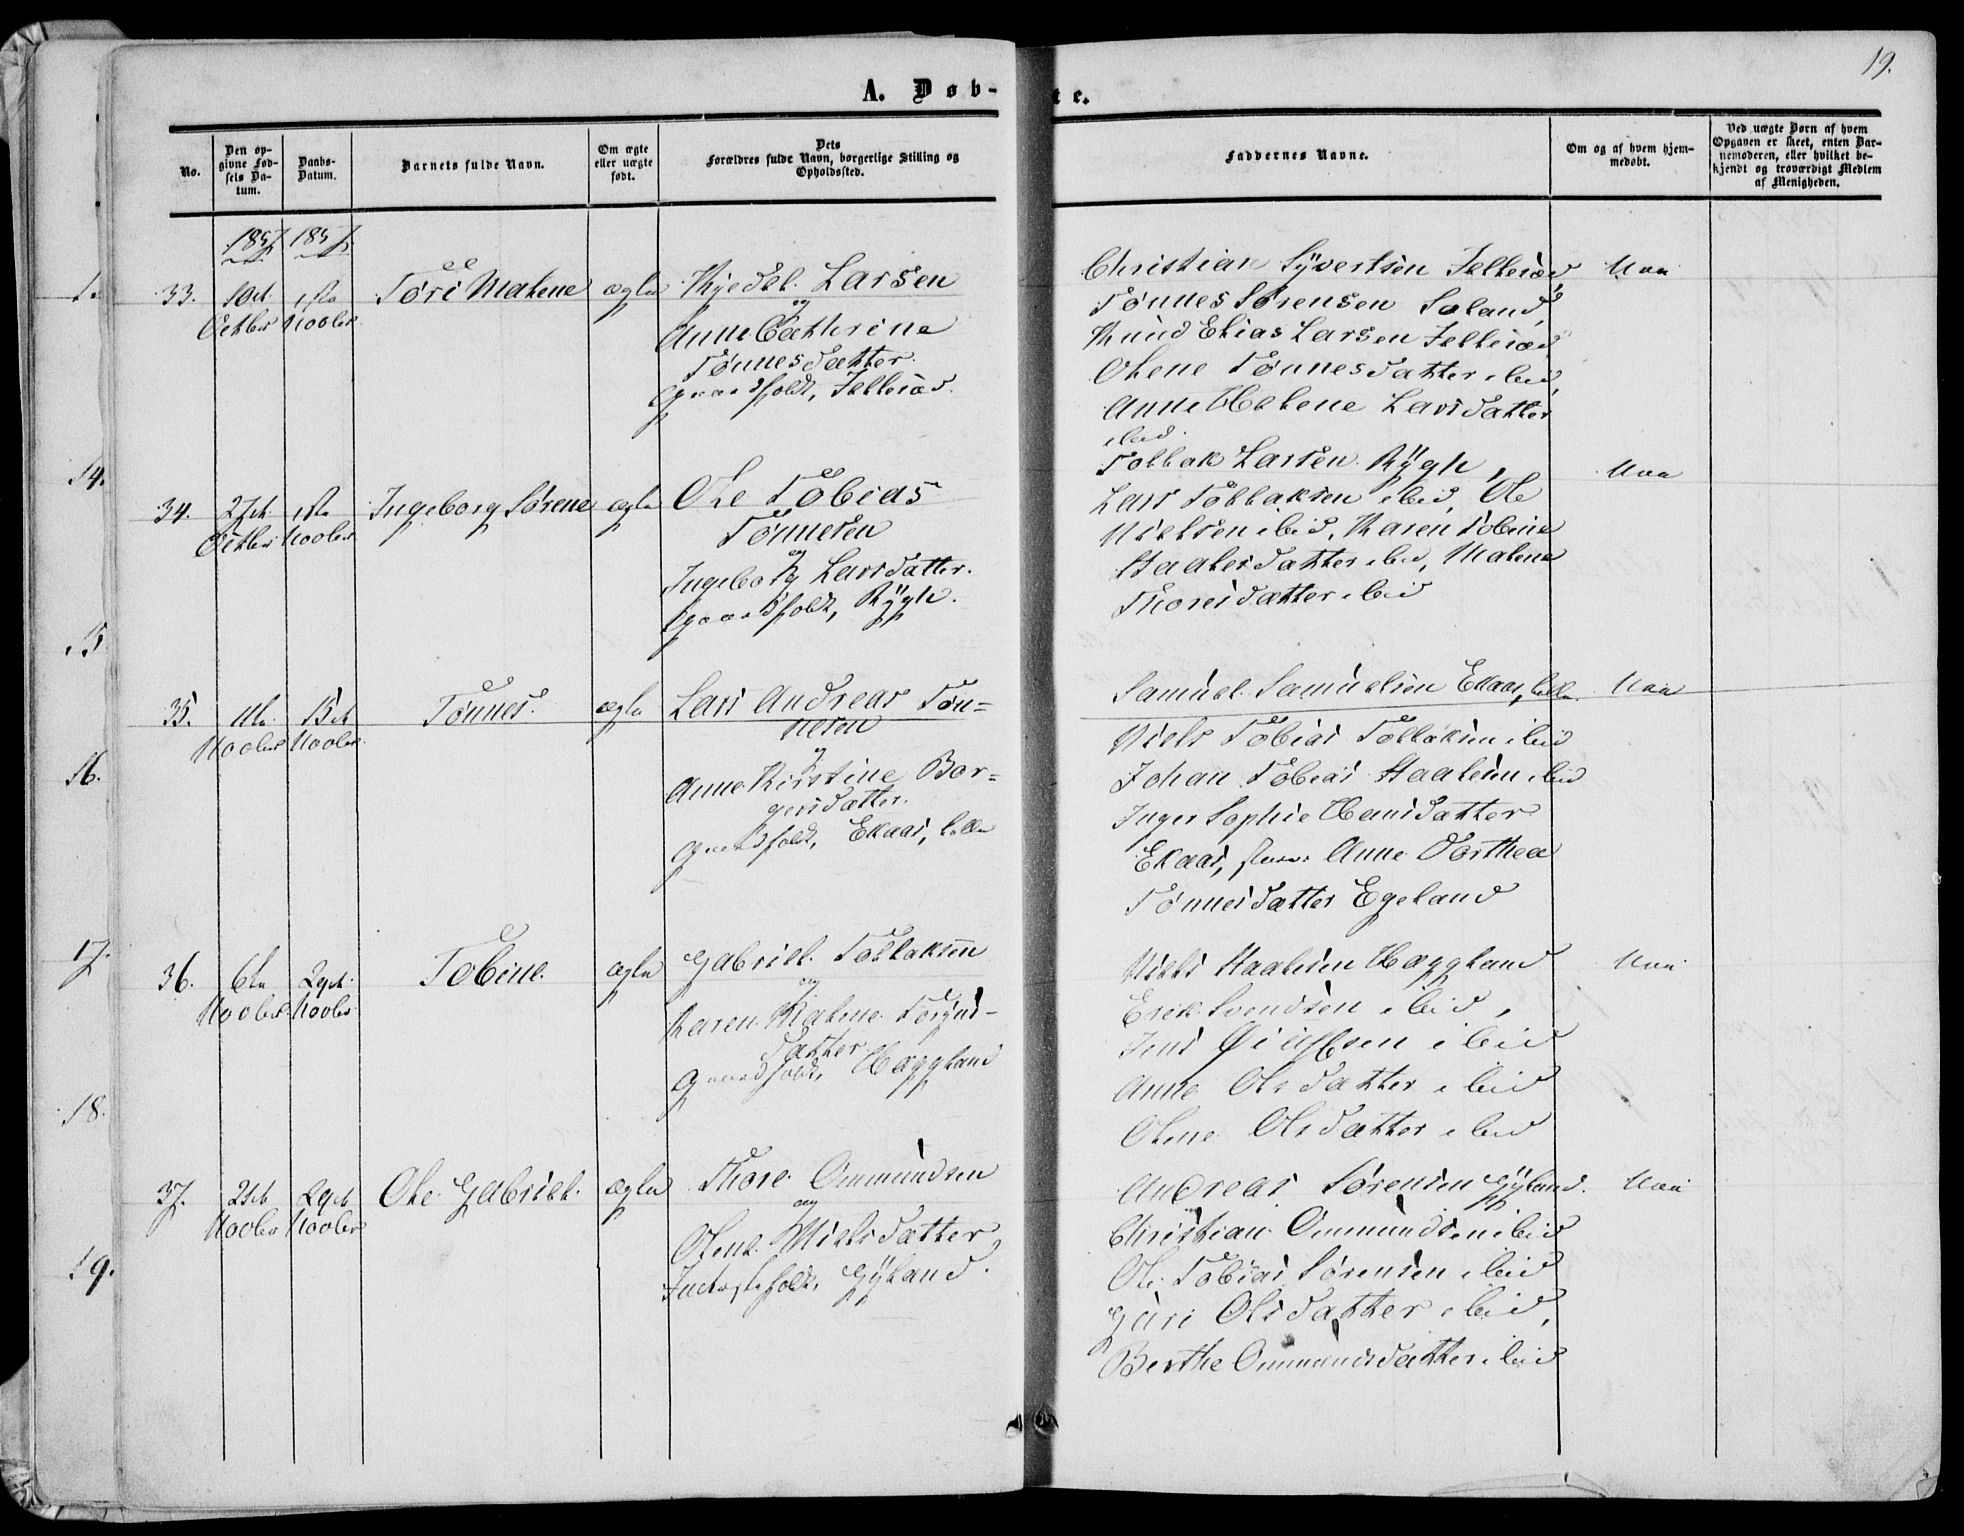 19.
A. Døb-
te.
No.
Den opgivne Fødsels Datum.
Daabs-Datum.
Barnets fulde Navn.
Om ægte eller uægte født.
Dets Forældres fulde Navn, borgerlige Stilling og Opholdssted.
Faddernes Navne.
Om og af hvem hjemmedøbt.
Ved uægte Børn af hvem Opgaven er skeet, enten Barnemoderen, eller hvilket bekjendt og troværdigt Medlem af Menigheden.
1857 1857
33.
10de Octbr
1ste Novbr
Tøri Malene
ægte
Kjedel Larsen
og
Anne Cathrine
Tønnesdatter
Gaardfolk, Jellerød.
Christian Syvertsen Jellerød
Tønnes Sørensen Soland,
Knud Elias Larsen Jellerød
Olene Tønnesdatter ibid,
Anne Helene Larsdatter
ibid.
34.
27de Octbr
1ste Novbr
Ingeborg Sørene
ægte
Ole Tobias
Tønnesen
og
Ingeborg Larsdatter.
Gaardfolk, Rygh.
Tollak Larsen Rygh,
Lars Tollaksen ibid, Ole
Nielsen ibid, Karen Tobine
Staalesdatter ibid, Malene
Thoresdatter ibid
35.
11te Novbr
15de Novbr
Tønnes.
ægte
Lars Andreas Tøn-
nesen
og
Anne Kirstine Bor-
gersdatter.
Gaardfolk, Ekaas, lille
Samuel Samuelsen Ekaas, lille
Niels Tobias Tollaksen ibid
Johan Tobias Staalesen ibid
Inger Sophie Hansdatter
Ekaas, store Anne Dorthea
Tønnesdatter Egeland
36.
6te Novbr
29de Novbr
Tobine.
ægte
Gabriel Tollaksen
og
Karen Malene Torjus-
datter
Gaardfolk, Hæggland
Niels Staalesen Hæggland
Erik Svendsen ibid,
Jens ibid
Anne Olsdatter ibid
Olene Olsdatter ibid
37.
21de Novbr
29de Novbr
Ole Gabriel.
ægte
Thore Ommundsen
og
Olene Nielsdatter
Inderstefolk, Gyland.
Andreas Sørensen Gyland.
Christian Ommundsen ibid
Ole Tobias Sørensen ibid
Guri Olsdatter ibid,
Berthe Ommundsdatter ibid
14.
15
16.
17.
18.
19.